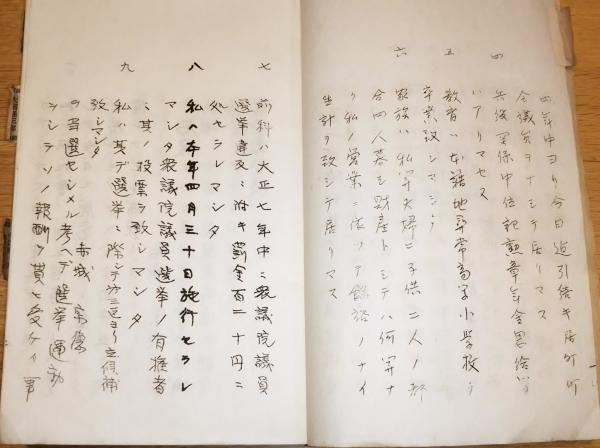 四
四年中ヨリ今日迄引續キ居町町
会議員ヲナシテ居リマス
兵役関係中位記勲章年金恩給等
ハアリマセヌ
五
教育ハ本籍地尋常高等小学校ヲ
卒業致シマシタ
六
家族ハ私等夫婦ニ子供二人ノ都
合四人暮シ財産トシテハ何等ナ
ク私ノ営業ニ依ツテ餘裕ノナイ
生計ヲ致シテ居リマス
七
前科ハ大正七年中ニ衆議院議員
選挙違反ニ付キ罰金百二十円ニ
処セラレマシタ
八
私ハ本年四月三十日施行セラレ
マシタ衆議院議員選挙ノ有権者
ニ其ノ投票ヲ致シマシタ
九
私ハ其デ選挙ニ際シテ
立候補
致シマシタ
赤城
ヲ当選セシメル考ヘデ選挙運動
ヲシテソノ報酬ヲ貰ヒ受ケイ事